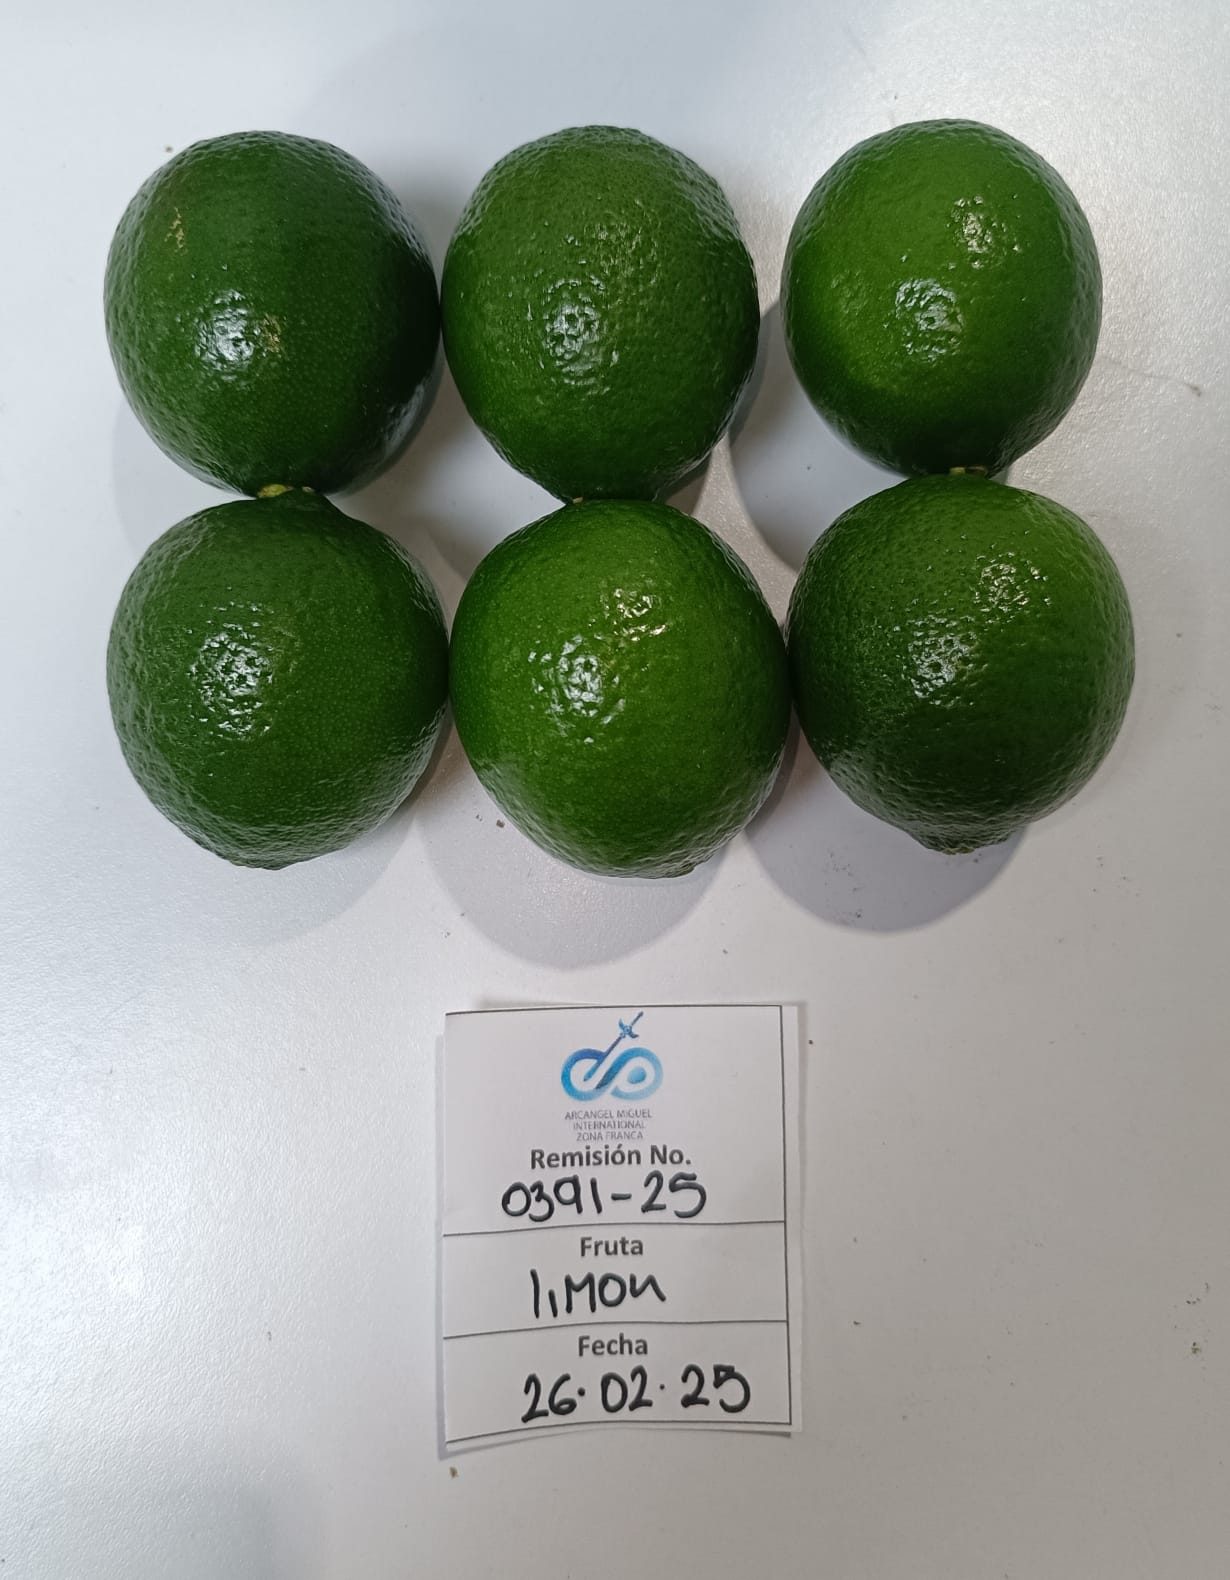 ARCANGEL MIGUEL
INTERNATIONAL
ZONA FRANCA
Remisión No.
0391-25
Fruta
limon
Fecha
26.02.25